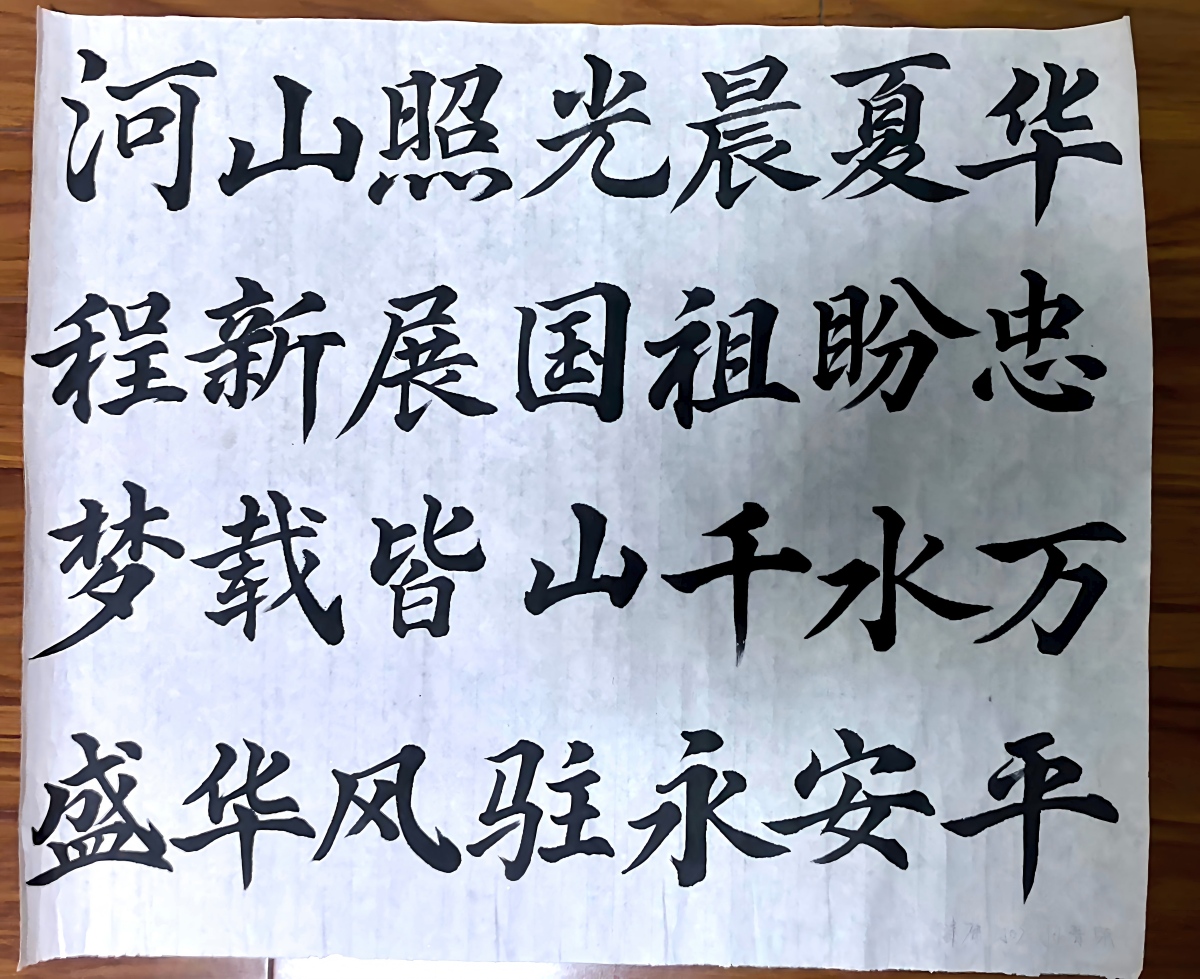 华夏晨光照山河
忠盼祖国展新程
万水千山皆载梦
平安永驻风华盛